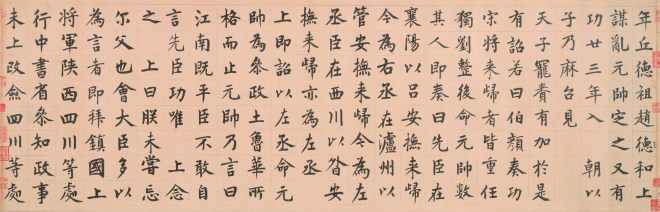 年丘德祖趙德和上
謀亂元帥定之又有
功廿三年入 朝以
子乃麻台見
天子寵賚有加於是
有詔若曰伯顏奏功
宗將来歸者皆重任
獨劉整後命元帥數
其人即奏曰先臣在
襄陽以呂安撫来歸
今為右丞在瀘州以
管安撫来歸今為左
丞臣在西川以昝安
撫来歸亦為左丞
上即詔以左丞命元
帥為叅政土魯華所
格而止元帥乃言曰
江南既平臣不敢自
言先臣功唯 上念
之 上曰朕未嘗忘
尔父也會大臣多以
為言者即拜鎮國上
將軍陝西四川等處
行中書省叅知政事
未上改僉四川等處